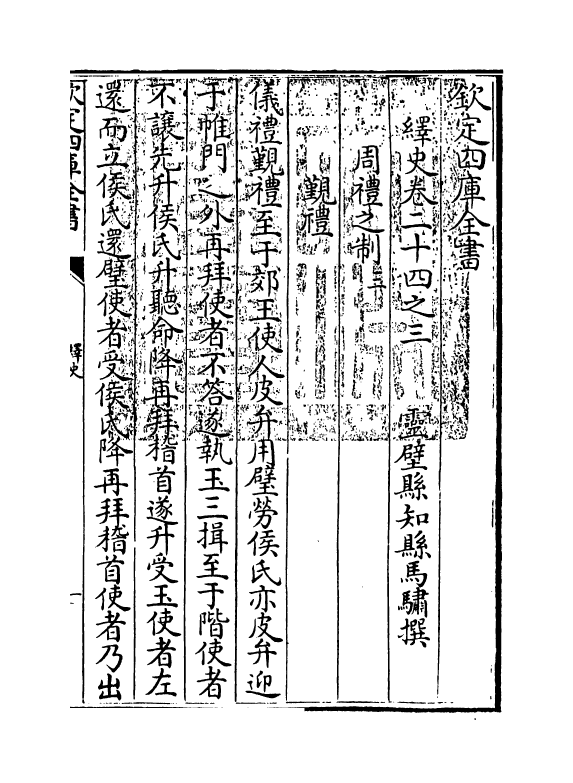 欽定四庫全書
繹史卷二十四之三　靈壁縣知縣馬驌撰
周禮之制三
覲禮
儀禮覲禮至于郊王使人皮弁用璧勞侯氏亦皮弁迎
于帷門之外再拜使者不答拜遂執玉三揖至于階使者
不讓先升侯氏升聽命降再拜稽首遂升受玉使者左
還而立侯氏還璧使者受侯氏降再拜稽首使者乃出
欽定四庫全書
繹史
一